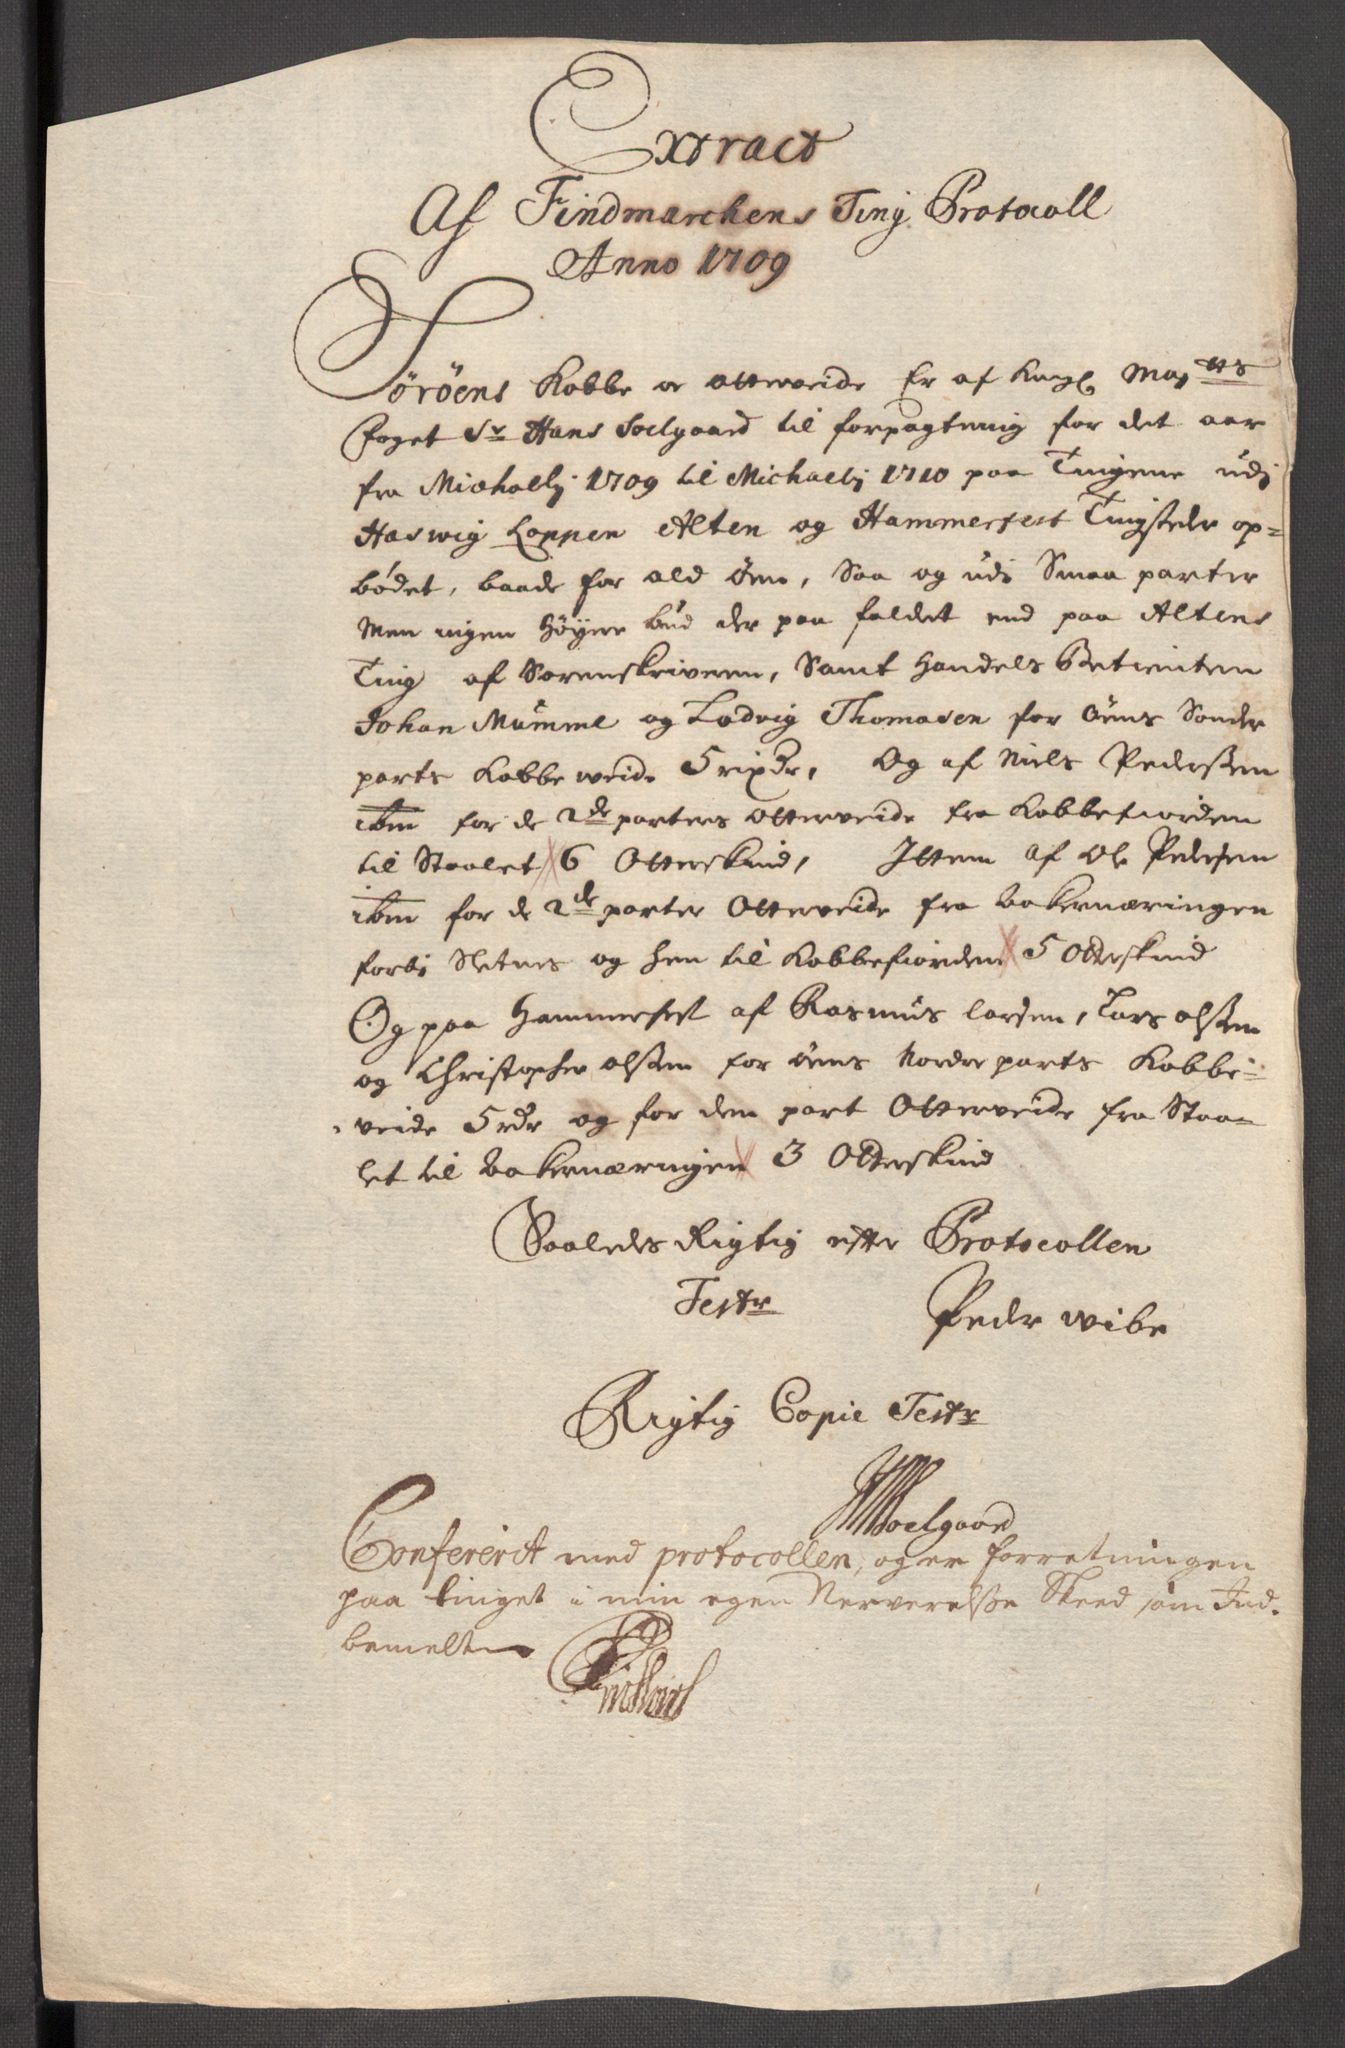 Extract
Af Findmarchens Ting Protocoll
Anno 1709
Söröens Kobbe oc otterveide Er af Kongl Maytts
foget Sr Hans Soelgaard til forpagtning for det aar
fra Michaelij 1709 til Michaelij 1710 paa Tingene udj
Haswig Loppen Alten og Hammerfest Tingsteder op=
bödet, baade for ald öen, Saa og udi Smaa parter
Men ingen höyere bud der paa faldet end paa Altens
Ting af Sorenskriveren, Samt Handels Betienten
Johan Mumme og Lodvig Thomasen for öens Sonder
parts Kobbe weide 5 rixdr, Og af Niels Pedersen
ibm for de 2de parters otterveide fra Kobbefiorden
til Staalet 6 Otterskind, Ittem af Ole Pedersen
ibm for de 2de parter Otterveide fra bakernæringen
forbi Sletnes og hen til Kobbefiorden 5 Otterskind
Og paa Hammerfest af Rasmus larsen, Lars olsen
og Christopher olsen for öens Nordre parts Kobbe=
veide 5 rdr og for den part Otterveide fra Staa=
let til bakernæringen 3 Otterskind
Saaledes Rigtig efter Protocollen
Testr Peder wibe
Rigtig Copie Testr
HSoelgaard
Confererit med protocollen, og er forretningen
paa tinget i min egen Nerverelsse Skeed som Ind=
bemelt